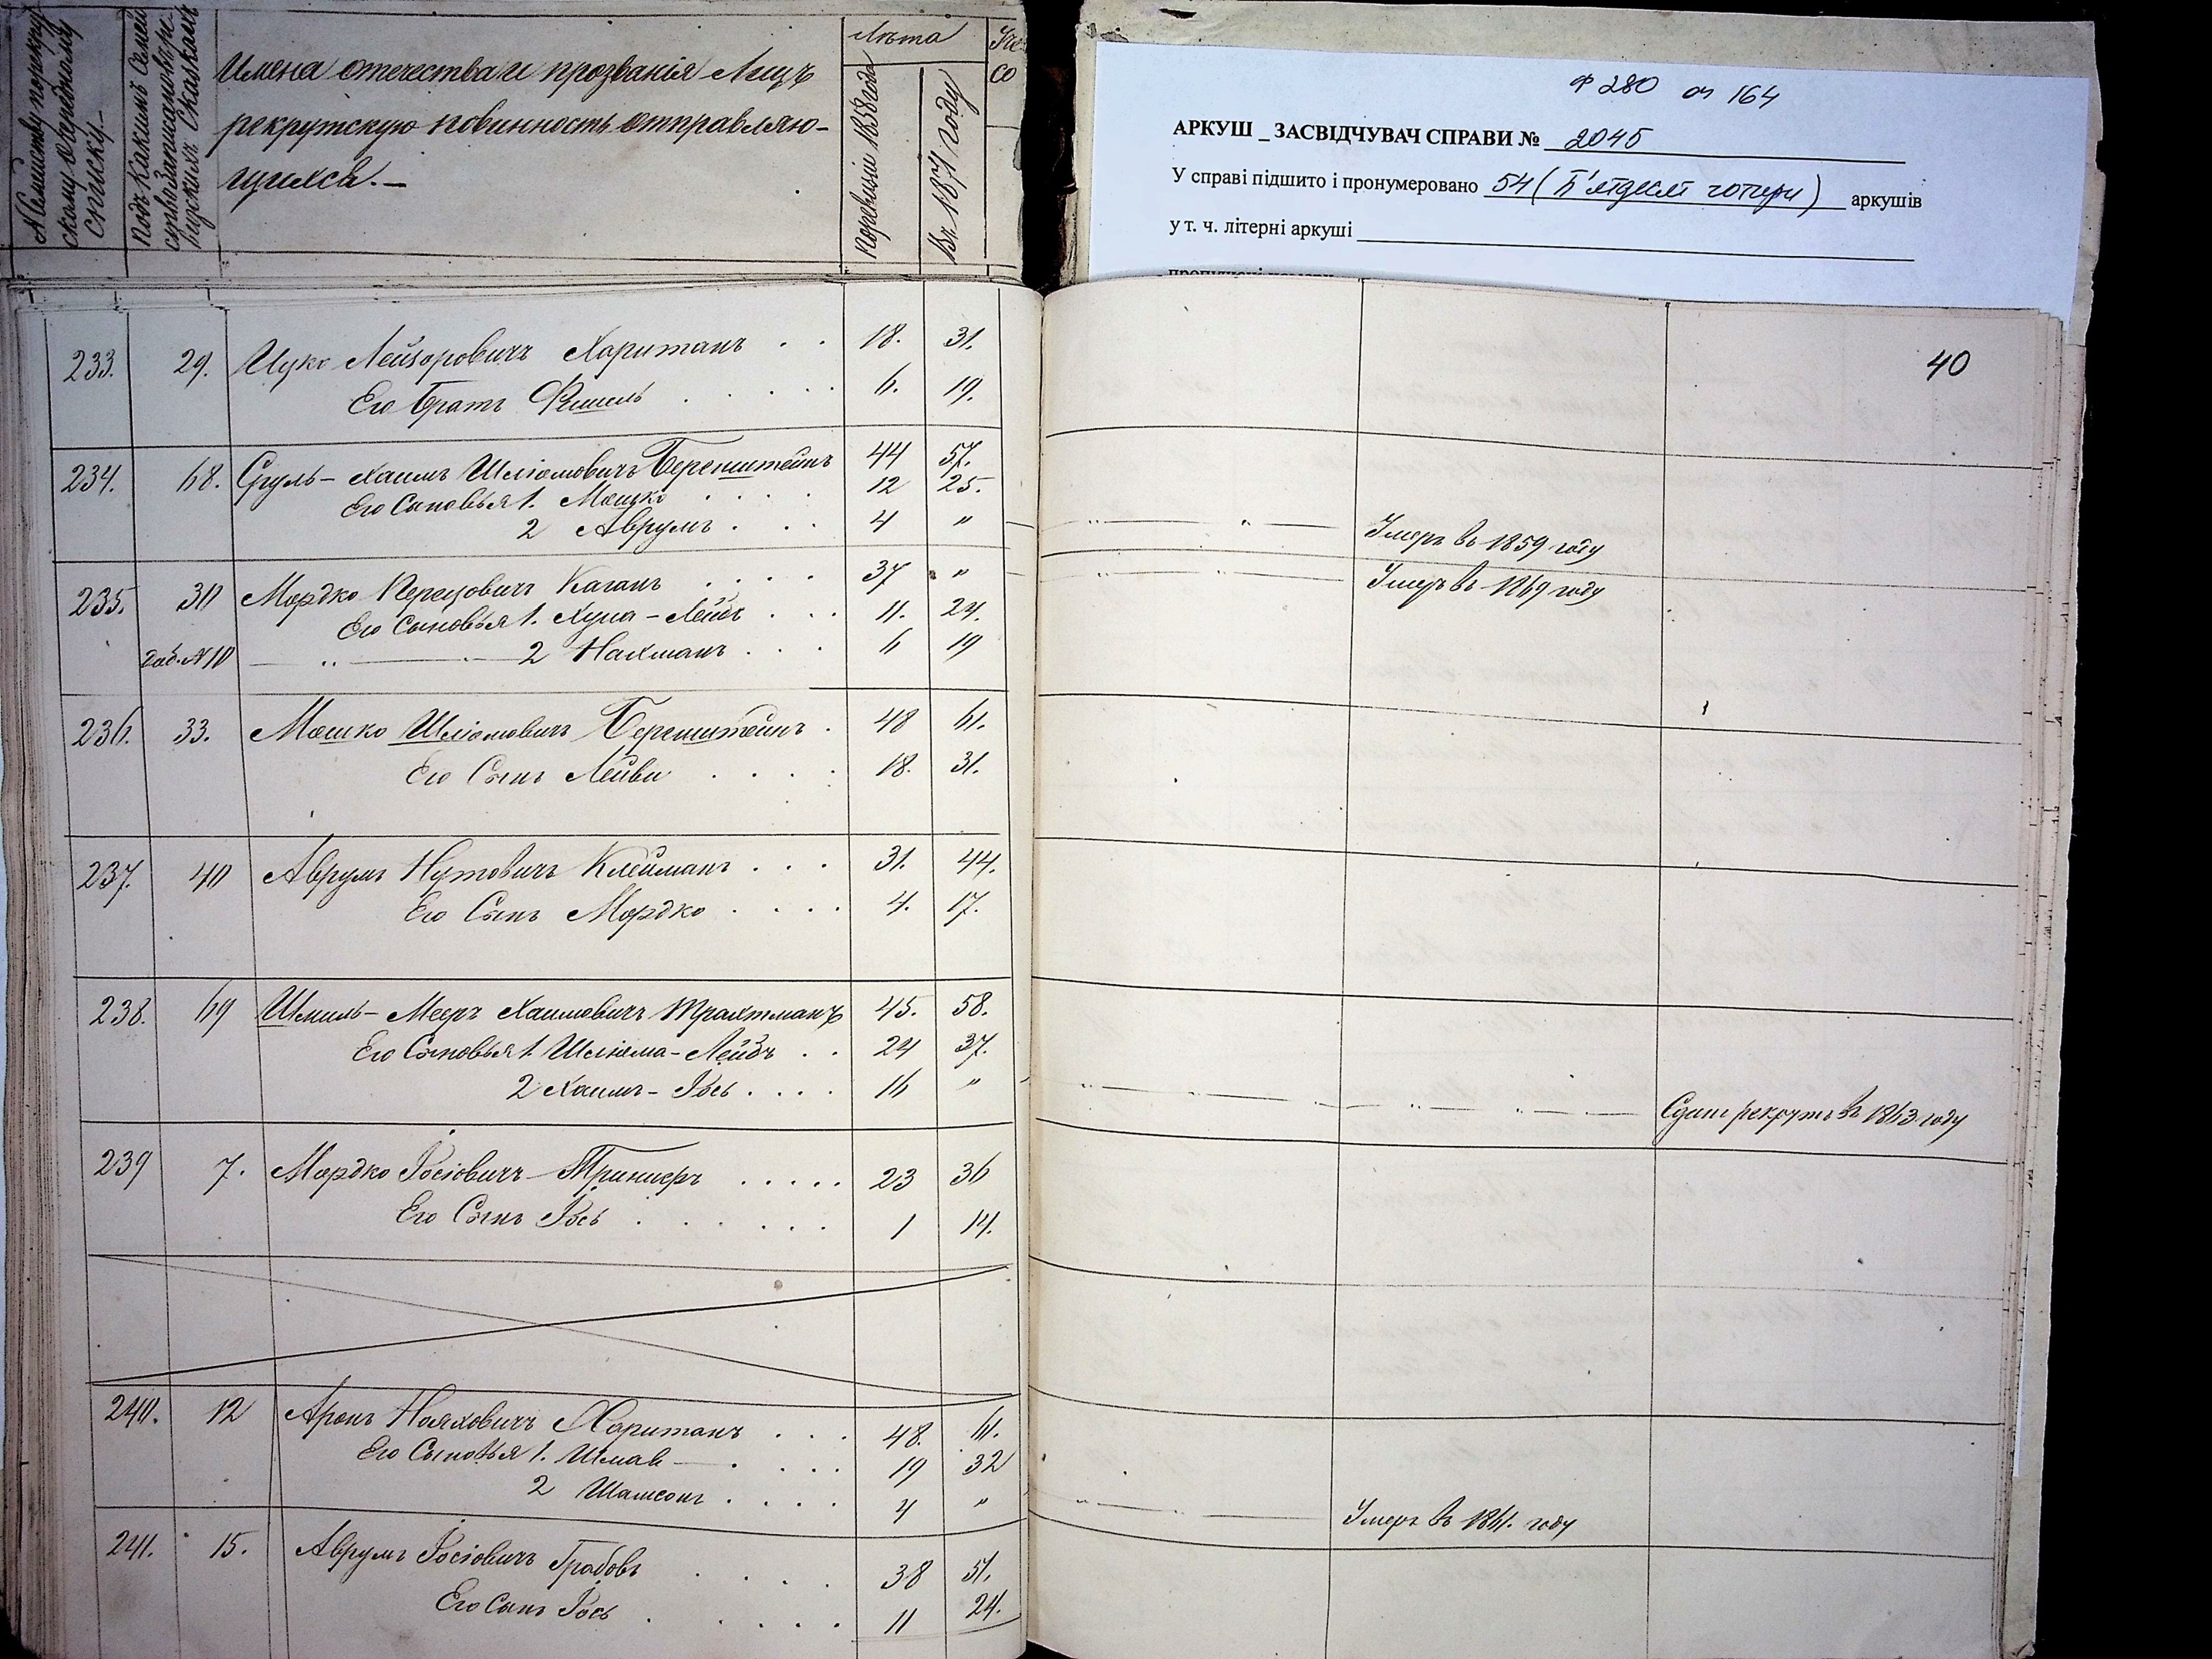 № Семейству по рекрутскому очередному списку.—
Подъ какимъ семействомъ ревизскихъ сказкахъ
Имена отечества и прозванія Лицъ
рекрутскую повинность отправляю-
щихся.—
Лѣта
По ревизіи 1858 года
Въ 1871 году
Со
Ф 280 оп 164
АРКУШ _ ЗАСВІДЧУВАЧ СПРАВИ № 2045
У справі підшито і пронумеровано 54 (П'ятдесят чотири) аркушів
у т. ч. літерні аркуші
40
233. 29. Ицко Лейзоровичъ Хаританъ . . 18. 31.
Его Братъ Фишель . . . . 6. 19.
234. 68. Сруль-Хаимъ Шлiомовичъ Беренштейнъ 44 57.
Его Сыновья 1. Мошко . . . . 12 25.
2 Аврумъ . . . 4 " Умеръ въ 1859 году
235. 30 Мордко Перецовичъ Каганъ . . . . 37 " Умеръ въ 1869 году
Его Сыновья 1. Хуна-Лейбъ . . . 11. 24.
Доб. № 10 2 Нахманъ . . . 6 19
236. 33. Мошко Шлiомовичъ Беренштейнъ . 48 61.
Его Сынъ Лейви . . . . 18. 31.
237. 40 Аврумъ Нутовичъ Клейманъ . . . 31. 44.
Его Сынъ Мордко . . . . 4. 17.
238. 69 Шмиль-Мееръ Хаимовичъ Трахтманъ 45. 58.
Его Сыновья 1. Шлiома-Лейбъ . . 24 37.
2 Хаимъ-Іось . . . . 16 " Сданъ рекрутъ въ 1863 году
239 7. Мордко Іосіовичъ Триниеръ . . . . . 23 36
Его Сынъ Іось . . . . . . 1 14.
240. 12 Аронъ Нояховичъ Хаританъ . . . 48. 61.
Его Сыновья 1. Шмав . . . . 19 32
2 Шамсонъ . . . . 4 " Умеръ въ 1861. году
241. 15. Аврумъ Іосіовичъ Грабовъ . . . . 38 51.
Его Сынъ Іось . . . . . 11 24.